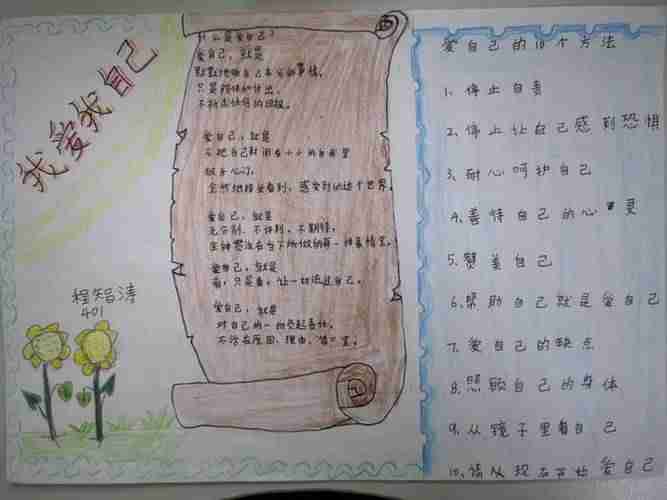 我爱我自己
程智涛
401
什么是爱自己?
爱自己,就是
默默地做自己本分的事情。
只是陪伴和付出。
不祈求任何的回报。
爱自己,就是
不把自己封闭在小小的自我里
敞开心门,
全然地接受看到,感受到的这个世界。
爱自己,就是
无分别、不评判、不期待。
全神贯注在当下所做的每一件事情里。
爱自己,就是
看,只是看,让一切流过自己。
爱自己,就是
对自己的一切负起责任。
不活在原因、理由、借口里。
爱自己的10个方法
1. 停止自责
2. 停止让自己感到恐惧
3. 耐心呵护自己
4. 善待自己的心 更
5. 赞美自己
6. 帮助自己就是爱自己
7. 爱自己的缺点
8. 照顾自己的身体
9. 从镜子里看自己
10. 请从现在开始爱自己